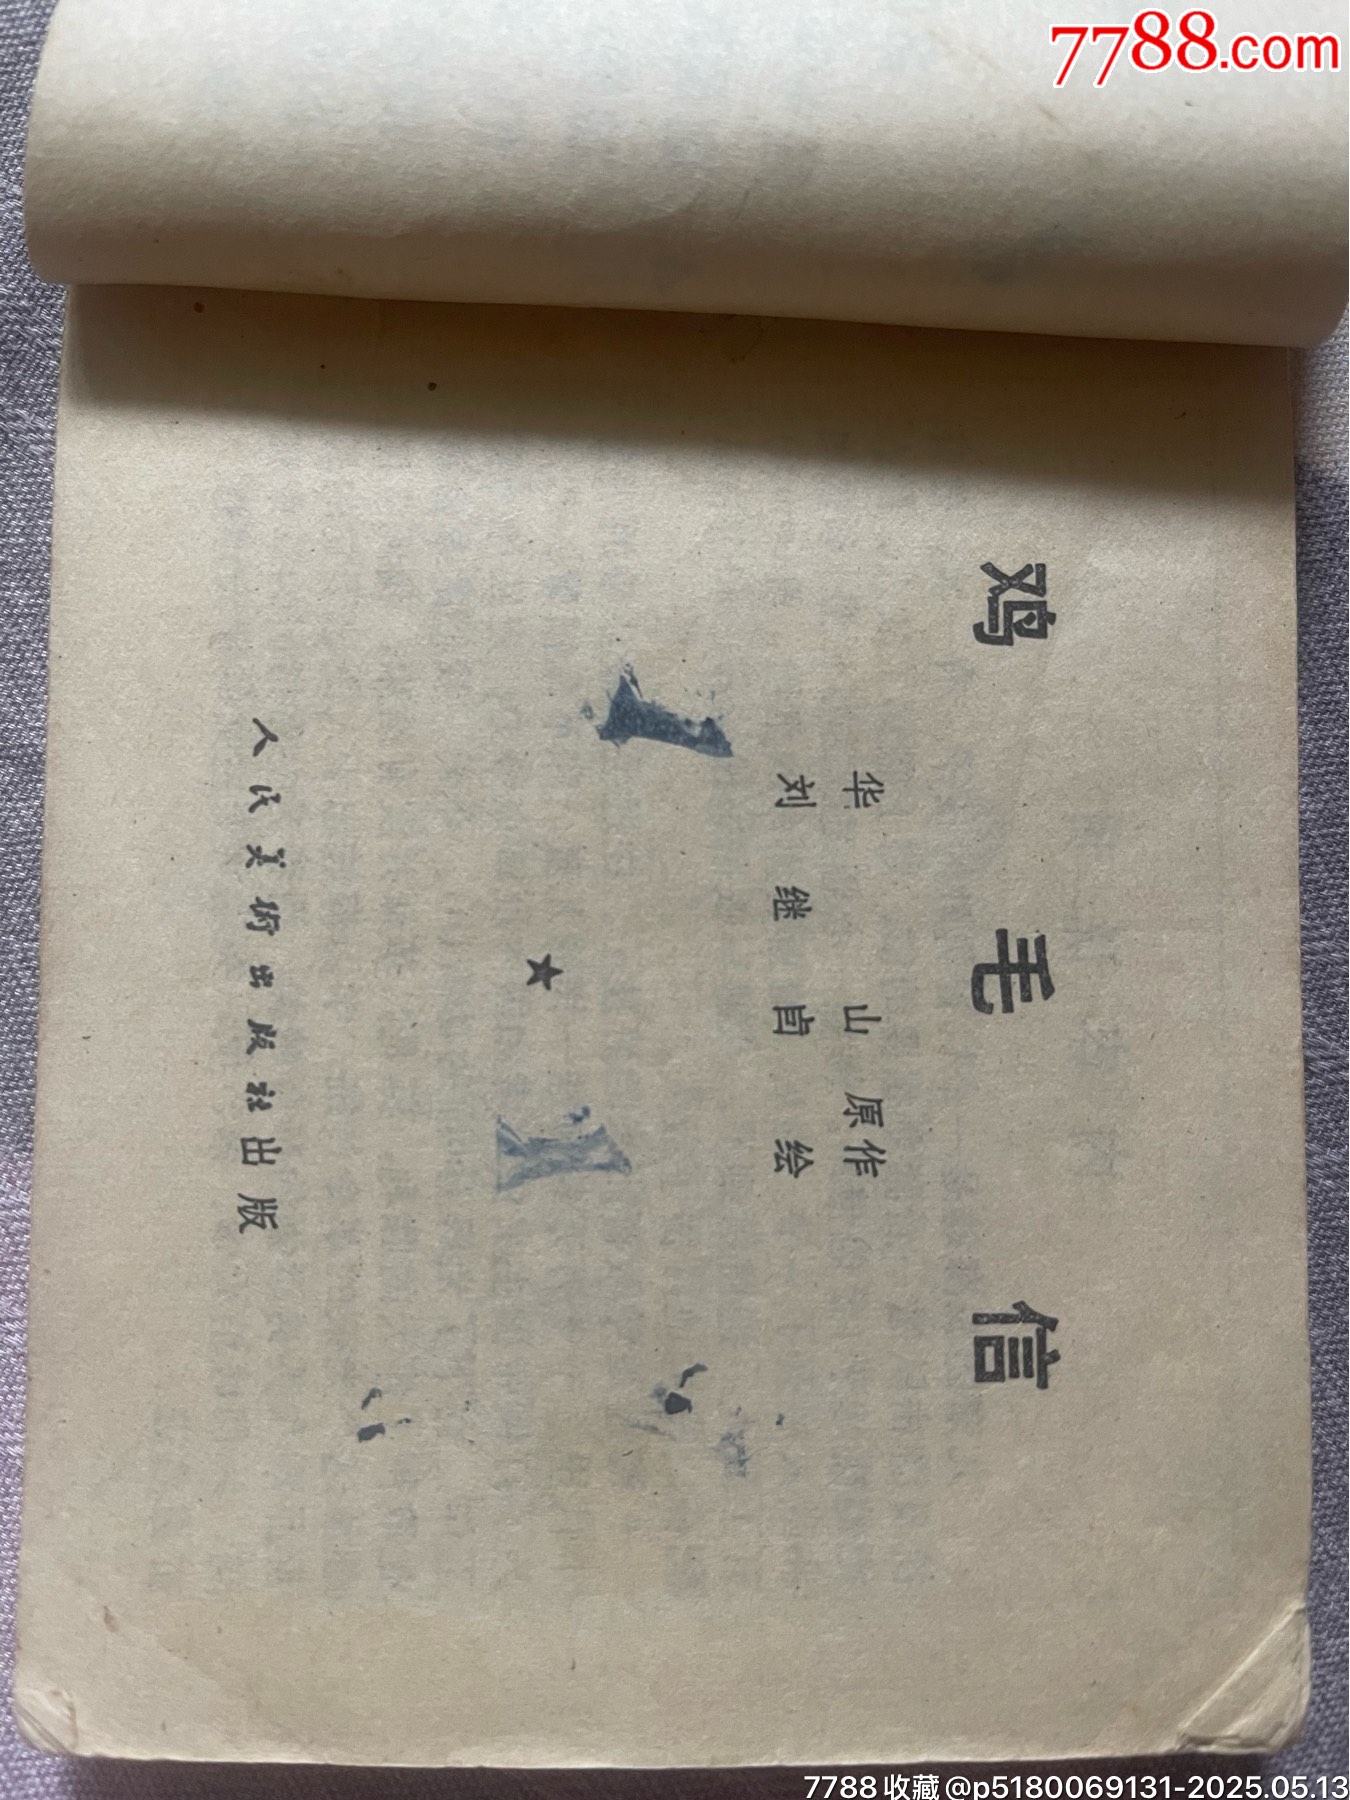 7788.com
鸡毛信
华山原作
刘继卣绘
★
人民美術出版社出版
7788收藏@p5180069131-2025.05.13